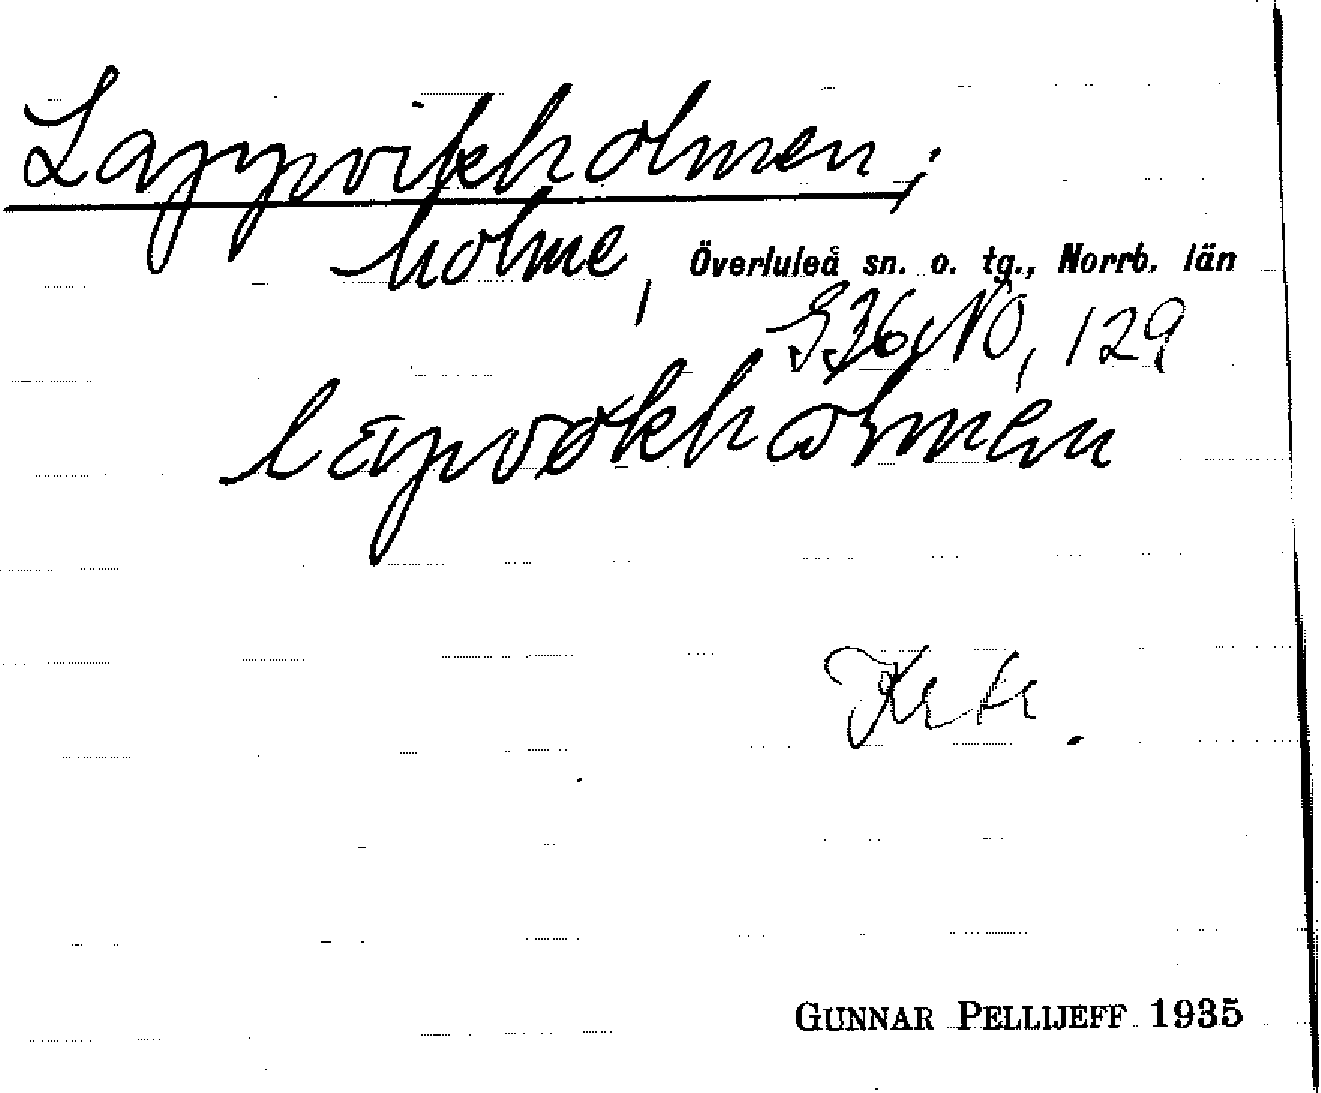 Lappvikholmen;
holme, Överluleå sn. o. tg., Norrb. län
S36NO, 129
Krtr.
GUNNAR PELLIJEFF 1935